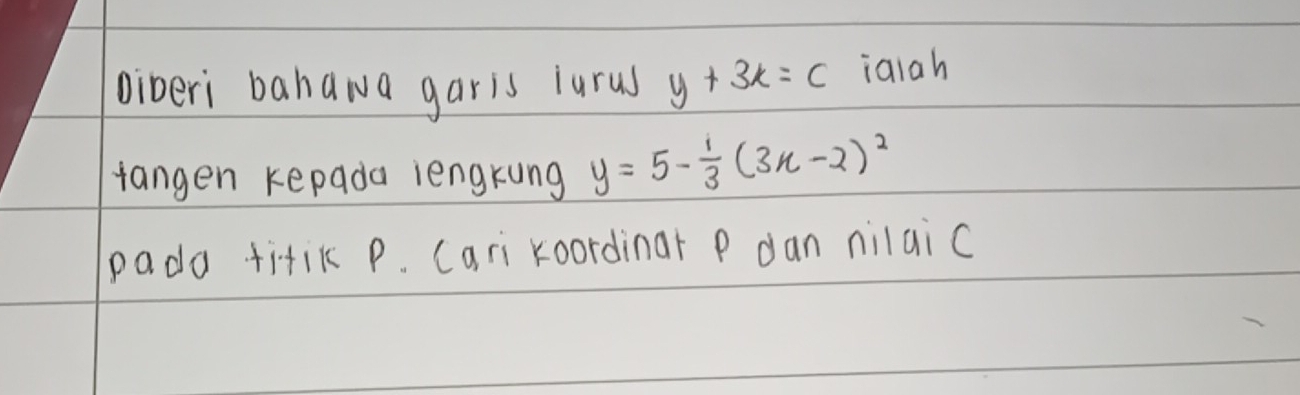 Diberi bahawa garis lurus y + 3x = c ialah
tangen kepada lengkung y = 5 - 1/3 (3x - 2)²
pada titik P. Cari koordinat P dan nilai C